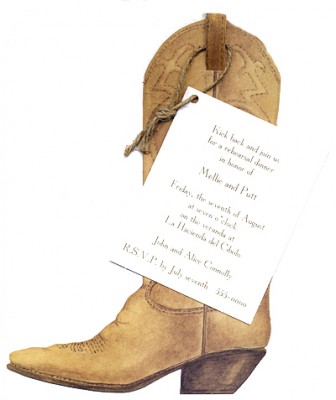 Kick back and join us
for a rehearsal dinner
in honor of
Mellie and Putt
Friday, the seventh of August
at seven o'clock
on the veranda at
La Hacienda del Cibolo
John and Alice Connolly
R.S.V.P. by July seventh 555-0000